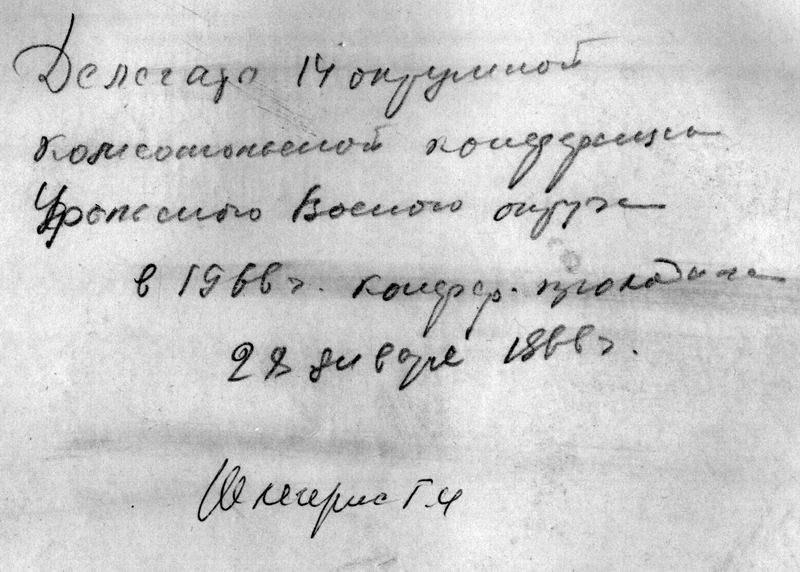 Делегата 14 окружной
комсомольской конференции
Уральского Военого округа
в 1966 г. конфер. проходила
28 января 1966 г.